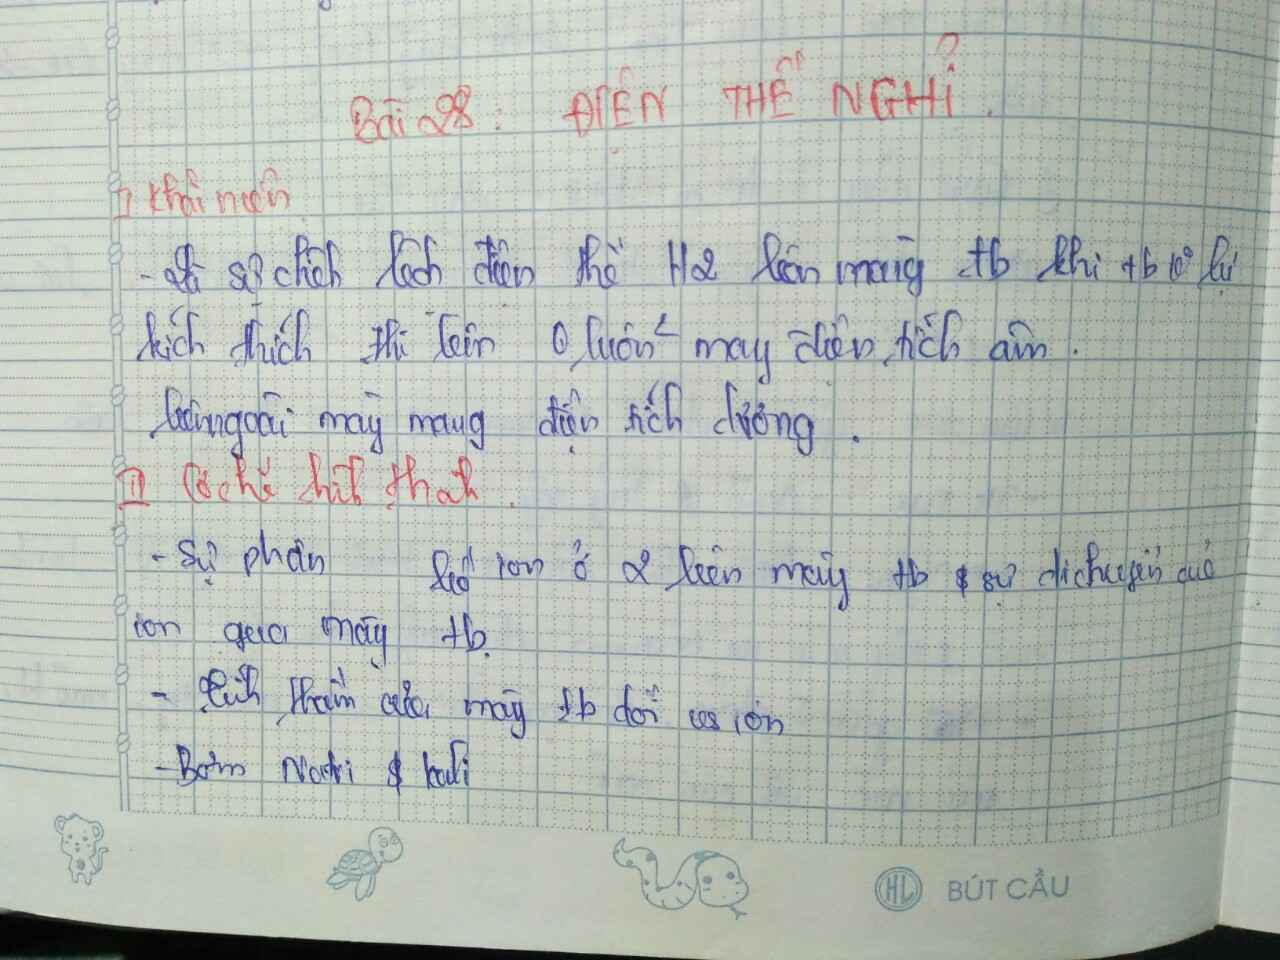 Bài 28: ĐIỆN THẾ NGHỈ.
I Khái niệm
- Là sự chênh lệch điện thế 2 bên màng tb khi tb k
kích thích thì bên màng điện tích âm.
bên ngoài màng mang điện tích dương.
II Cơ chế hình thành.
- Sự phân bố ion ở 2 bên màng tb & sự di chuyển của
ion qua màng tb.
- Tính thấm của màng tb đối vs ion
- Bơm Natri & kali
HL BÚT CẦU